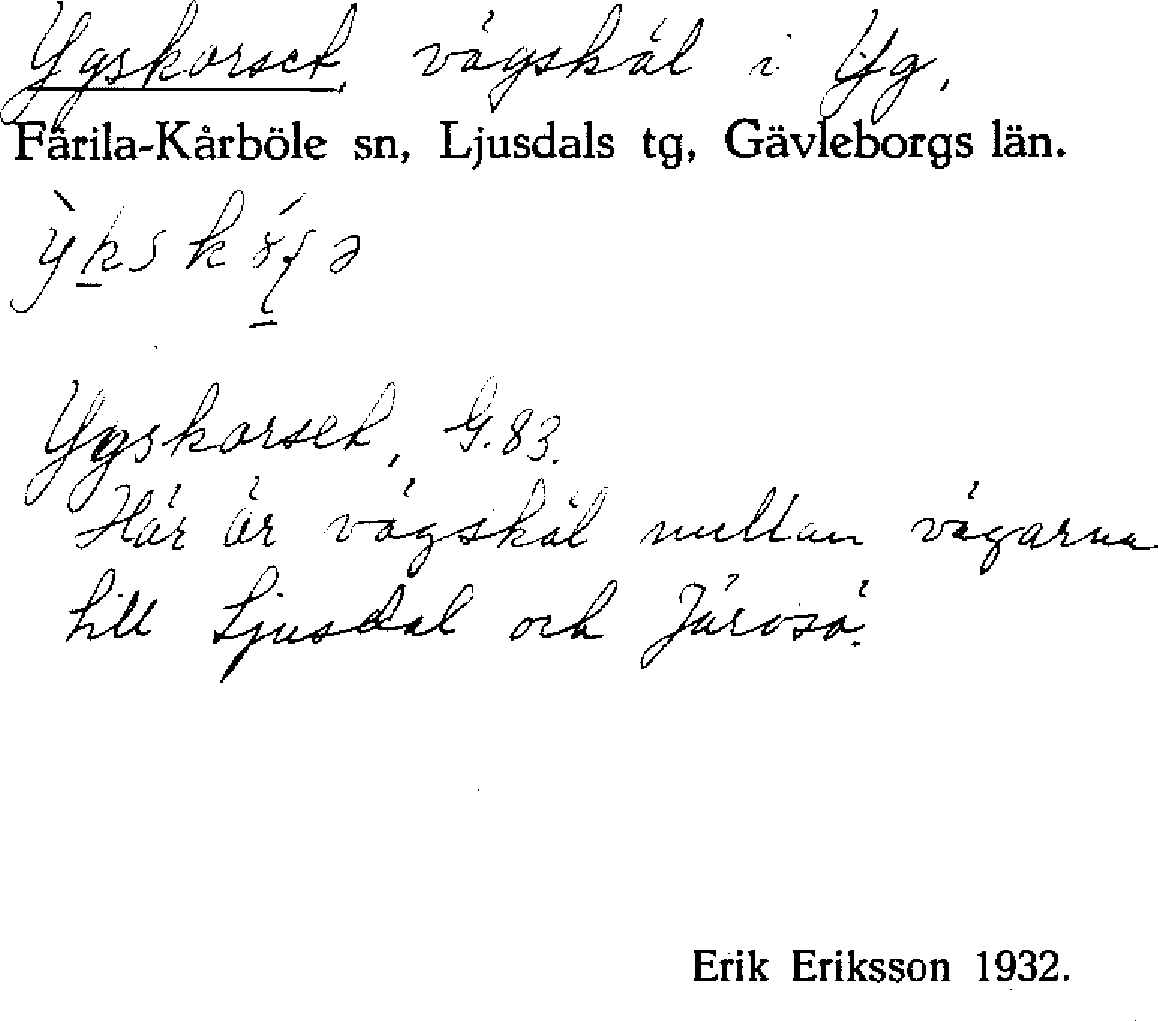 Ygskorset, vägskäl i Yg.
Färila-Kårböle sn, Ljusdals tg, Gävleborgs län.
Ygskorset, G.83.
Här är vägskäl mellan vägarna
till Ljusdal och Järvsö.
Erik Eriksson 1932.